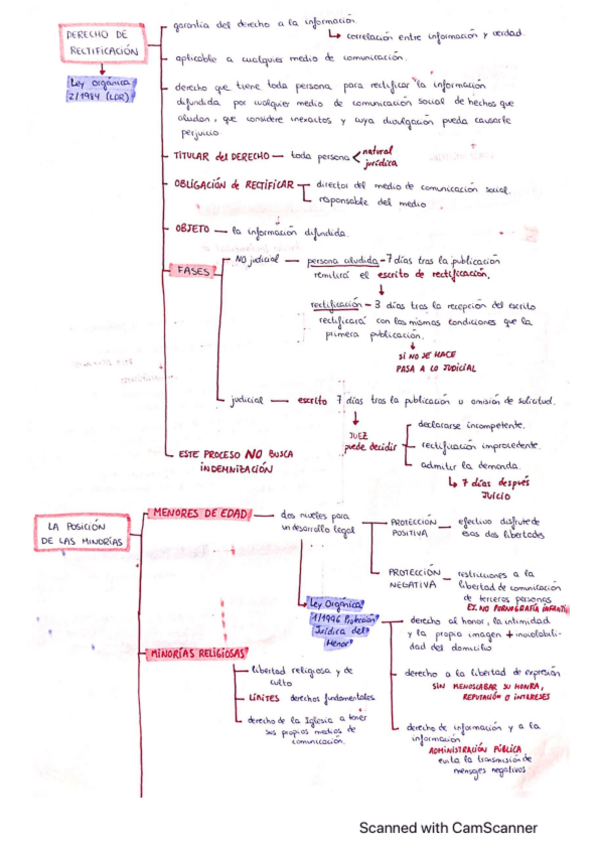 DERECHO DE
RECTIFICACIÓN
Ley Orgánica
2/1984 (LDR)
garantía del derecho a la información.
↳ correlación entre información y verdad.
aplicable a cualquier medio de comunicación.
derecho que tiene toda persona para rectificar la información
difundida por cualquier medio de comunicación social de hechos que
aludan, que considere inexactos y cuya divulgación pueda causarle
perjuicio
TITULAR del DERECHO — toda persona < natural
jurídica
OBLIGACIÓN de RECTIFICAR — director del medio de comunicación social.
responsable del medio
OBJETO — la información difundida.
FASES
NO judicial — persona aludida - 7 días tras la publicación
remitirá el escrito de rectificación.
↓
rectificación - 3 días tras la recepción del escrito
rectificará con las mismas condiciones que la
primera publicación.
↓
SI NO SE HACE
PASA A LO JUDICIAL
judicial — escrito 7 días tras la publicación u omisión de solicitud.
↓
JUEZ
puede decidir
declararse incompetente.
rectificación improcedente.
admitir la demanda.
↳ 7 días después
JUICIO
ESTE PROCESO NO BUSCA
INDEMNIZACIÓN
LA POSICIÓN
DE LAS MINORÍAS
MENORES DE EDAD — dos niveles para
un desarrollo legal
PROTECCIÓN
POSITIVA — efectivo disfrute de
esas dos libertades
PROTECCIÓN
NEGATIVA — restricciones a la
libertad de comunicación
de terceras personas
EX. NO PORNOGRAFÍA INFANTIL
Ley Orgánica
1/1996 Protección
Jurídica del
Menor
derecho al honor, la intimidad
y la propia imagen + inviolabili-
dad del domicilio
derecho a la libertad de expresión
SIN MENOSCABAR SU HONRA,
REPUTACIÓN O INTERESES
derecho de información y a la
información
ADMINISTRACIÓN PÚBLICA
evita la transmisión de
mensajes negativos
MINORÍAS RELIGIOSAS
libertad religiosa y de
culto
LÍMITES derechos fundamentales
derecho de la Iglesia a tener
sus propios medios de
comunicación.
Scanned with CamScanner